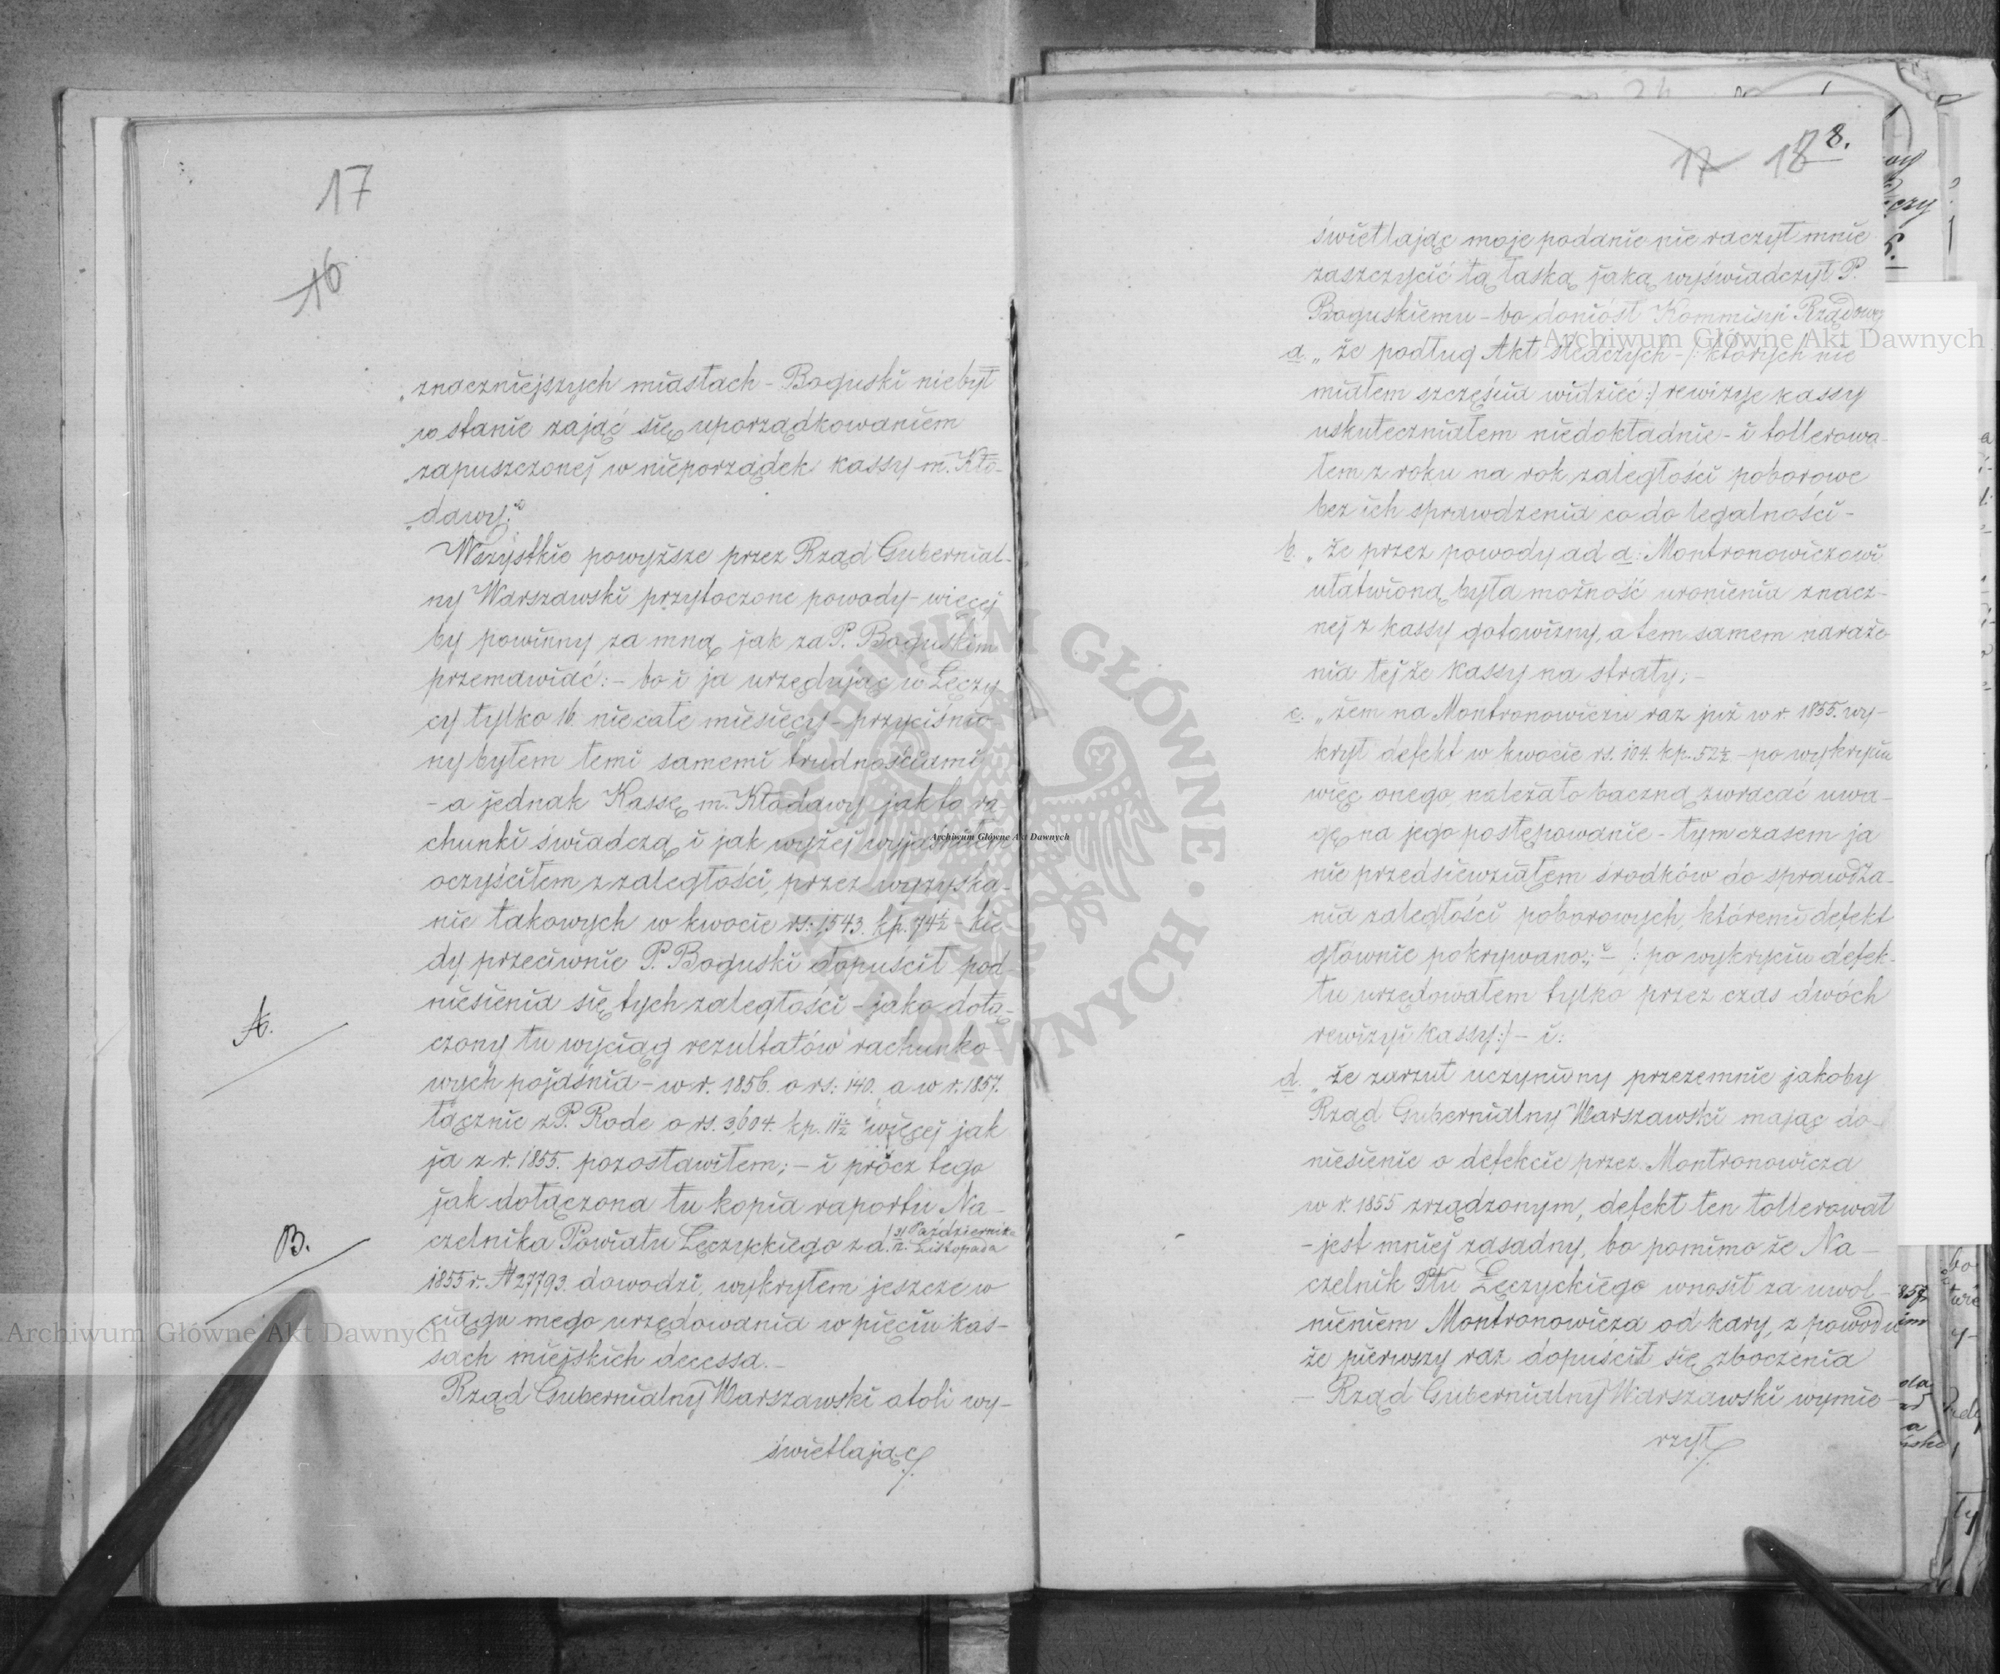 17
16
„znaczniejszych miastach - Boguski niebył
„w stanie zająć się uporządkowaniem
„zapuszczonej w nieporządek kassy m. Kło-
„dawy."
Wszystkie powyższe przez Rząd Gubernial-
ny Warszawski przytoczone powody - więcej
by powinny za mną, jak za P. Boguskim
przemawiać: - bo i ja urzędując w Łęczy
cy tylko 16 niecałe miesięcy - przyciśnio-
ny byłem temi samemi trudnościami
- a jednak Kassę m. Kłodawy jak to ra-
chunki świadczą i jak wyżej wyjaśniłem
oczyściłem z zaległości, przez wyzyska-
nie takowych w kwocie rs: 1543. kp. 74½ - kie
dy przeciwnie P. Boguski dopuścił pod
niesienia się tych zaległości - jako dołą-
A.
czony tu wyciąg rezultatów rachunko-
wych pojaśnia - w r. 1856. o rs: 140. a w r. 1857.
łącznie z P. Rode o rs. 3,604. kp. 11½ więcej jak
ja z r. 1855. pozostawiłem; - i prócz tego
jak dołączona tu kopia raportu Na-
B.
czelnika Powiatu Łęczyckiego z d. 31 Październik 12. Listopada
1855 r. N 27793. dowodzi, wykryłem jeszcze w
ciągu mego urzędowania w pięciu kas-
sach miejskich decessa. -
Rząd Gubernialny Warszawski atoli wy-
świetlając
17 18 8.
świetlając moje podanie nie raczył mnie
zaszczycić tą łaską, jaką wyświadczył P.
Boguskiemu - bo doniósł Kommisyi Rządowej
a. „że podług Akt śledczych - /: których nie
miałem szczęścia widzieć :/ rewizyje kassy
uskuteczniałem niedokładnie - i tollerowa-
łem z roku na rok zaległości poborowe
bez ich sprawdzenia co do legalności -
b. „że przez powody ad a: Montronowiczowi
ułatwioną była możność uronienia znacz-
nej z kassy gotowizny, a tem samem naraże-
nia tejże kassy na straty; -
c. „żem na Montronowiczu raz już w r. 1855. wy-
krył defekt w kwocie rs. 104. kp. 52½ - po wykryciu
więc onego, należało baczną zwracać uwa-
gę na jego postępowanie - tymczasem ja
nie przedsięwziąłem środków do sprawdza-
nia zaległości poborowych, któremi defekt
głównie pokrywano; - /: po wykryciu defek-
tu urzędowałem tylko przez czas dwóch
rewizyi kassy :/ - i:
d. „że zarzut uczyniony przezemnie jakoby
Rząd Gubernialny Warszawski mając do-
niesienie o defekcie przez Montronowicza
w r. 1855 zrządzonym, defekt ten tollerował
- jest mniej zasadny, bo pomimo że Na-
czelnik Ptu Łęczyckiego wnosił za uwol-
nieniem Montronowicza od kary, z powodu
że pierwszy raz dopuścił się zboczenia
- Rząd Gubernialny Warszawski wymie-
rzył
Archiwum Główne Akt Dawnych
Archiwum Główne Akt Dawnych
Archiwum Główne Akt Dawnych
ARCHIWUM GŁÓWNE AKT DAWNYCH